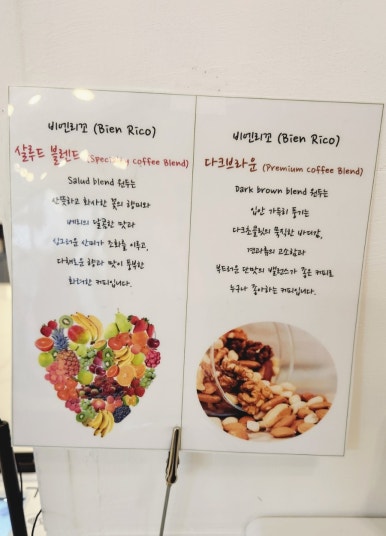 비엔리코 (Bien Rico)
살루드 블렌드 (Specialty coffee Blend)
Salud blend 원두는
산뜻하고 화사한 꽃의 향미와
베리의 달콤한 맛과
싱그러운 산미가 조화를 이루고,
다채로운 향과 맛이 풍부한
화려한 커피입니다.
비엔리코 (Bien Rico)
다크브라운 (Premium coffee Blend)
Dark brown blend 원두는
입안 가득히 풍기는
다크초콜릿의 묵직한 바디감,
견과류의 고소함과
부드러운 단맛의 밸런스가 좋은 커피로
누구나 좋아하는 커피입니다.